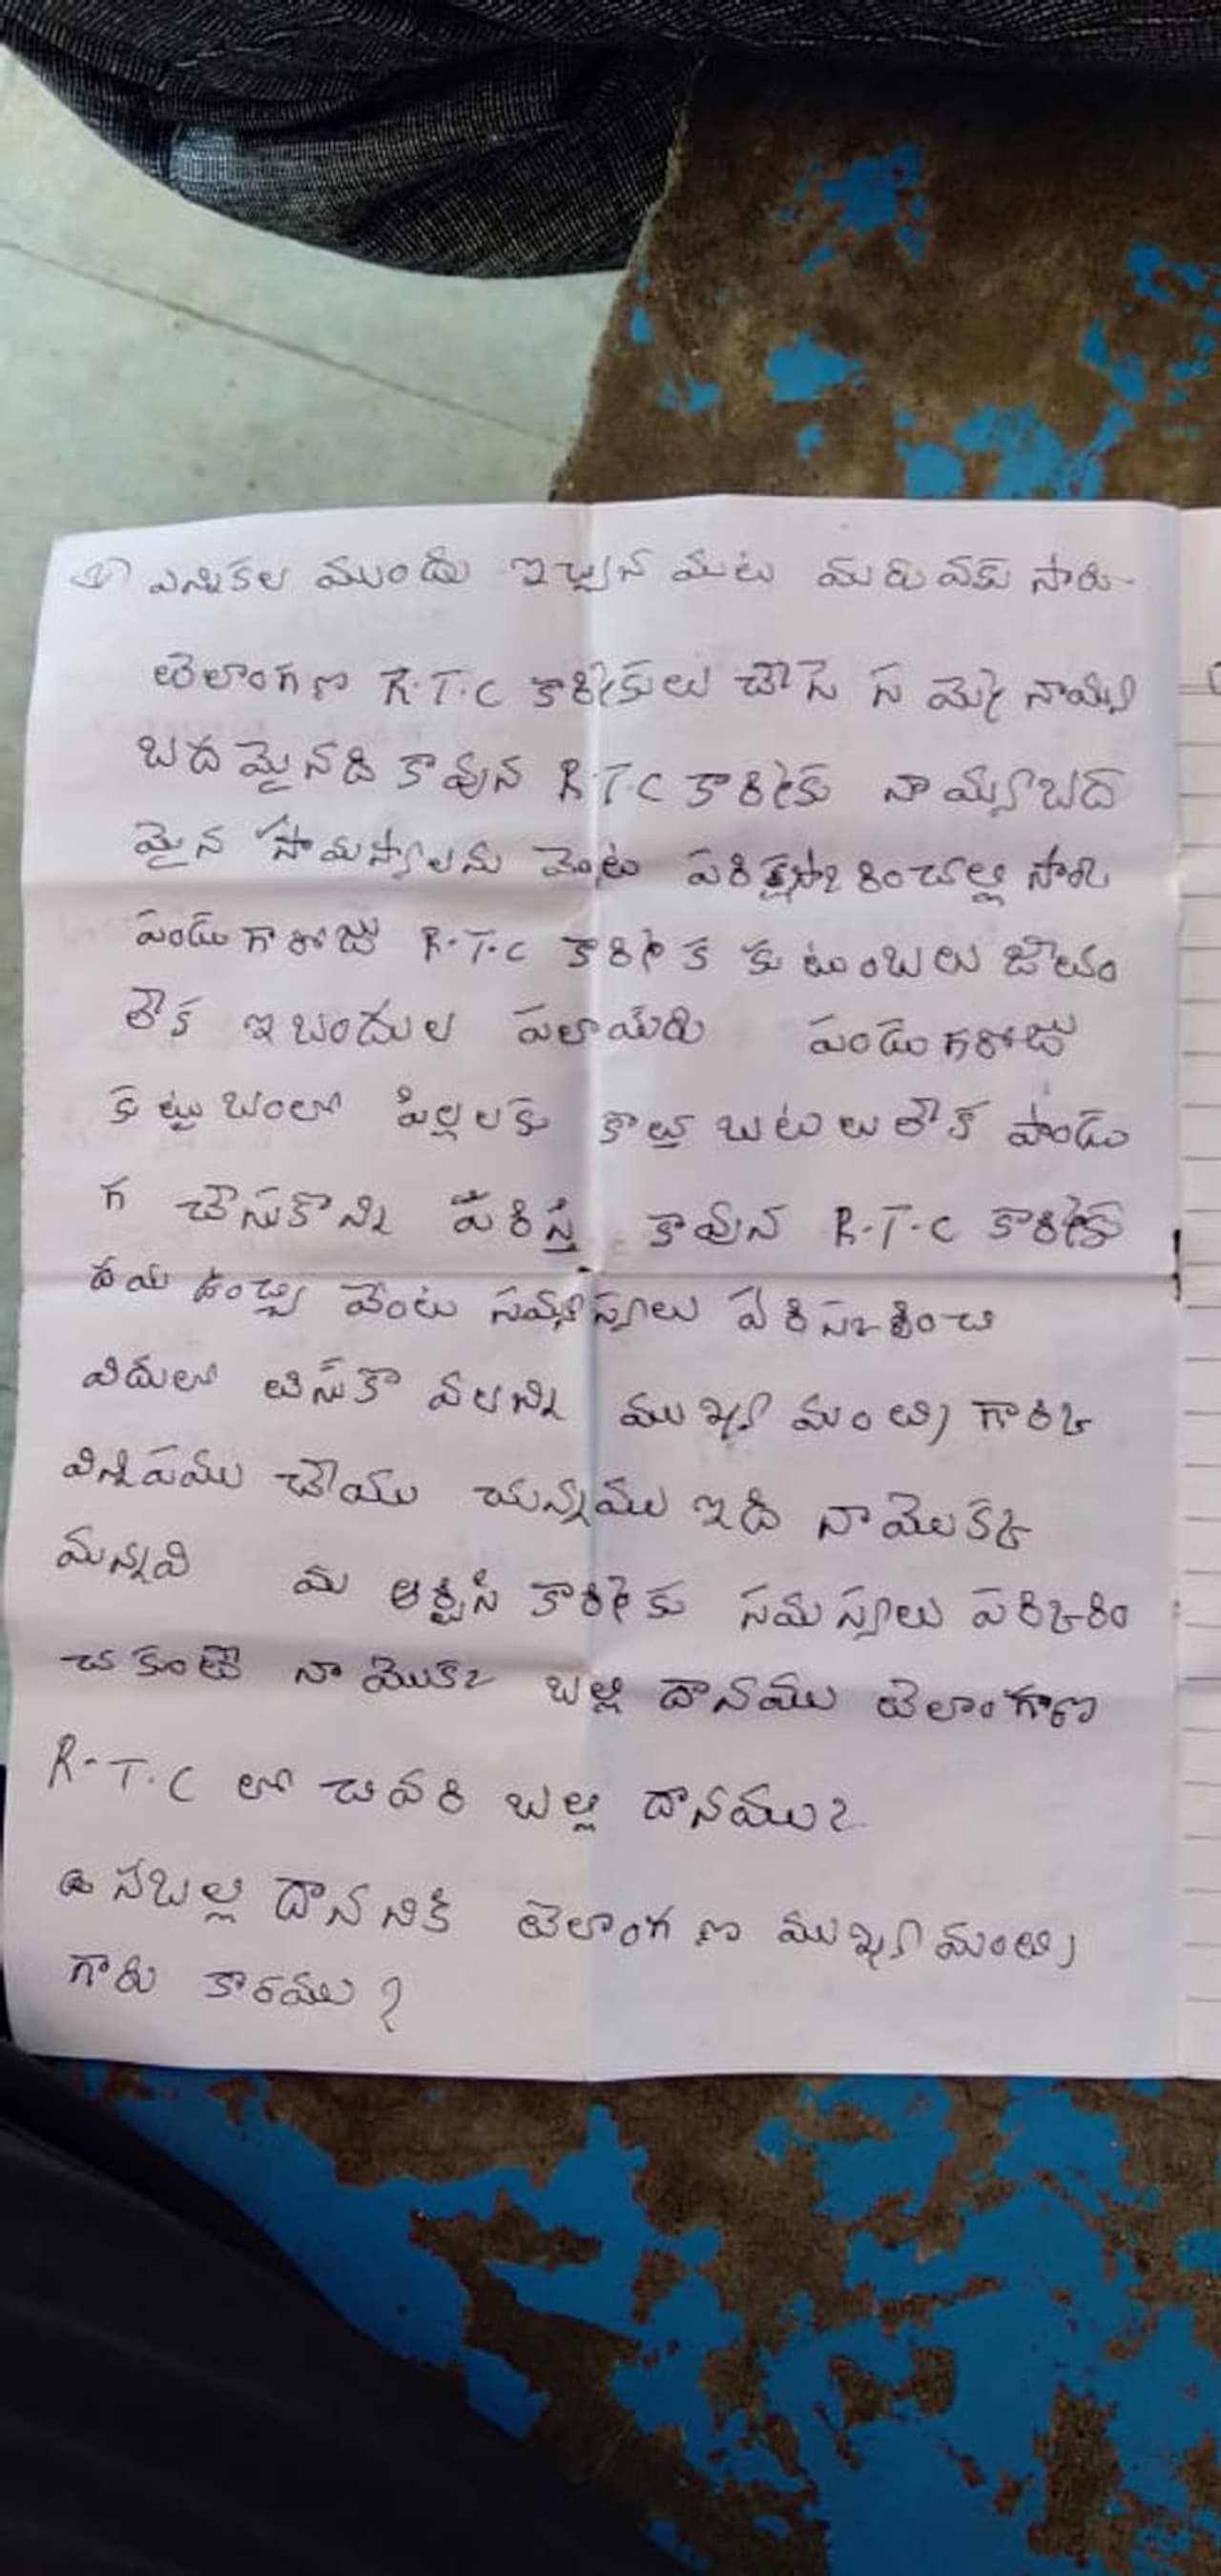 ఎన్నికల ముందు ఇచ్చన మట మరువకు సారు
తెలాంగణ R.T.C కార్మికులు చేసె స మ్మె నాయ్య
బదమైనది కావున R.T.C కార్మికు నాయ్యబద
మైన సామస్యాలను వెంట సారు
పండుగా రోజు R.T.C కార్మిక కుటుంబలు జీతం
లేక ఇబందుల పలాయరు పండుగరోజు
కుట్టుబంలో పిల్లలకు కొత్త బుటులు లేక పాండు
గ చేసుకొన్ని పరిస్తి కావున R.T.C కార్మికు
దయ ఉంచ్చి వేంటు సమస్యలు పరిస్కరించి
విదులో తిసుకొ వలన్ని ముఖ్య మంత్రి గారికి
విన్నిపము చేయు చున్నము ఇది నా మొకక్క
మన్నవి మ ఆర్టీసి కార్మికు సమస్యలు పరిక్కరిం
చకుంటే నా మొక్క బల్లి దానము తెలాంగాణ
R.T.C లో చివరి బల్లి దానము?
ఉ నబల్లి దాననికి తెలాంగ ణ ముఖ్య మంత్రి
గారు కారము?